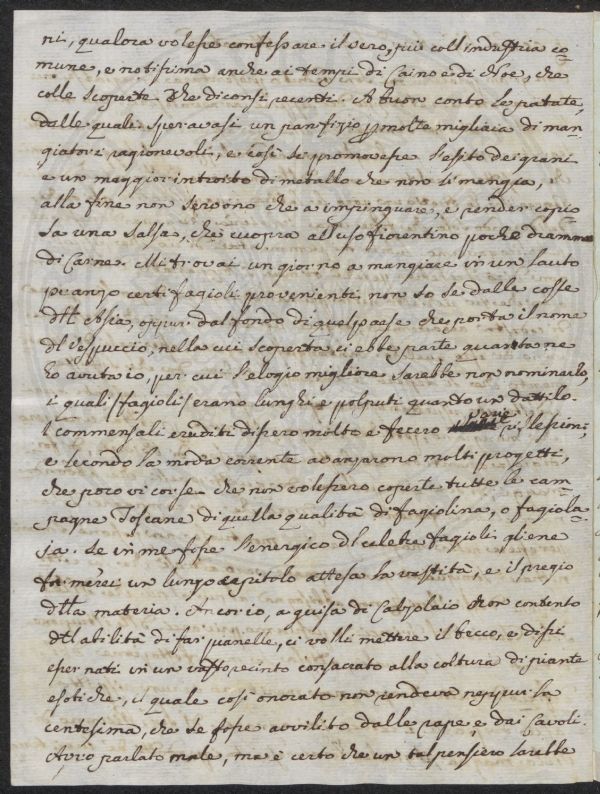 ni, qualora volesse confessare il vero, più coll'industria co=
mune, e notissima anche ai tempi di Caino e di Noe, che
colle scoperte che diconsi recenti. A buon conto le patate,
dalle quali speravasi un panfizio p molte migliaia di man=
giatori ragionevoli, e così si promovesse l'esito dei grani
e un maggior introito di metallo che non si mangia,
alla fine non servono che a impinguare, e render copio=
sa una salsa, che cuopra all'uso fiorentino poche dramme
di Carne. Mi trovai un giorno a mangiare in un lauto
pranzo certi fagioli provenienti non so se dalle coste
dll Asia, oppur dal fondo di quel paese che porta il nome
dl Vespuccio, nella cui scoperta ci ebbe parte quanta ne
ho avuta io, per cui l'elogio migliore sarebbe non nominarlo,
i quali /fagioli/ erano lunghi e polputi quanto un dattilo.
I commensali eruditi dissero molto e fecero varie riflessioni,
e secondo la moda corrente avanzarono molti progetti,
che poco vi corse che non volessero coperte tutte le cam=
pagne Toscane di quella qualità di fagiolina, o fagiola=
ja. Se in me fosse l'energico dl celebre fagioli gliene
un lungo capitolo attesa la vastità, e il pregio
dlla materia. Ancor io, a guisa di Calzolaio non contento
dll abilità di far pianelle, ci volli mettere il becco, e dissi
esser nati in un vasto recinto consacrato alla coltura di piante
esotiche, il quale così onorato non rendeva neppur la
centesima, che se fosse avvilito dalle rape e dai Cavoli.
Avrò parlato male, ma è certo che un tal pensiero sarebbe